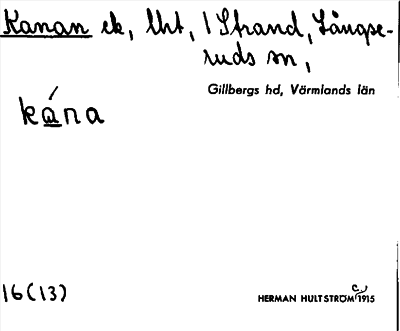 Kanan ek, lht, 1 Strand, Långse-
ruds sn,
Gillbergs hd, Värmlands län
kána
16(13)
HERMAN HULTSTRÖM c. 1915